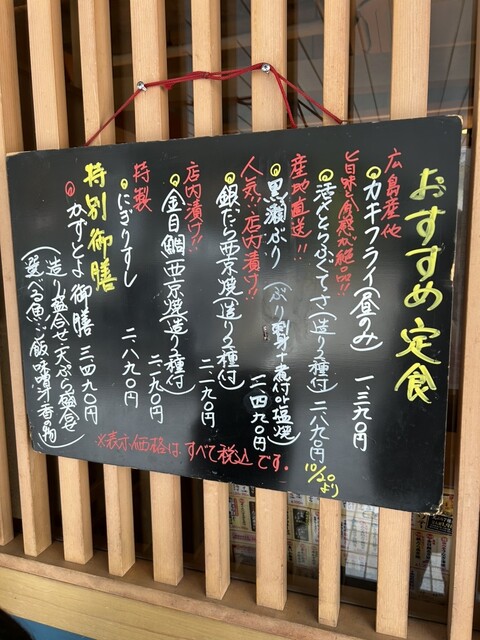 おすすめ定食
広島産他
カキフライ(昼のみ) 一、三九〇円
旨味と食感が絶品!!
活とらふぐてっさ(造り2種付) 二、八九〇円
10/20より
産地直送!!
黒瀬ぶり(ぶり刺身+煮付or塩焼) 二、四九〇円
人気!!店内漬け!!
銀だら西京焼(造り2種付) 二、一九〇円
店内漬け!!
金目鯛西京焼(造り2種付) 二、一九〇円
特製
にぎりすし 二、八九〇円
特別御膳
かずとよ御膳 三、四九〇円
(造り盛合せ・天ぷら・小鉢
選べる魚・ご飯・味噌汁・香の物)
※表示価格はすべて税込です。